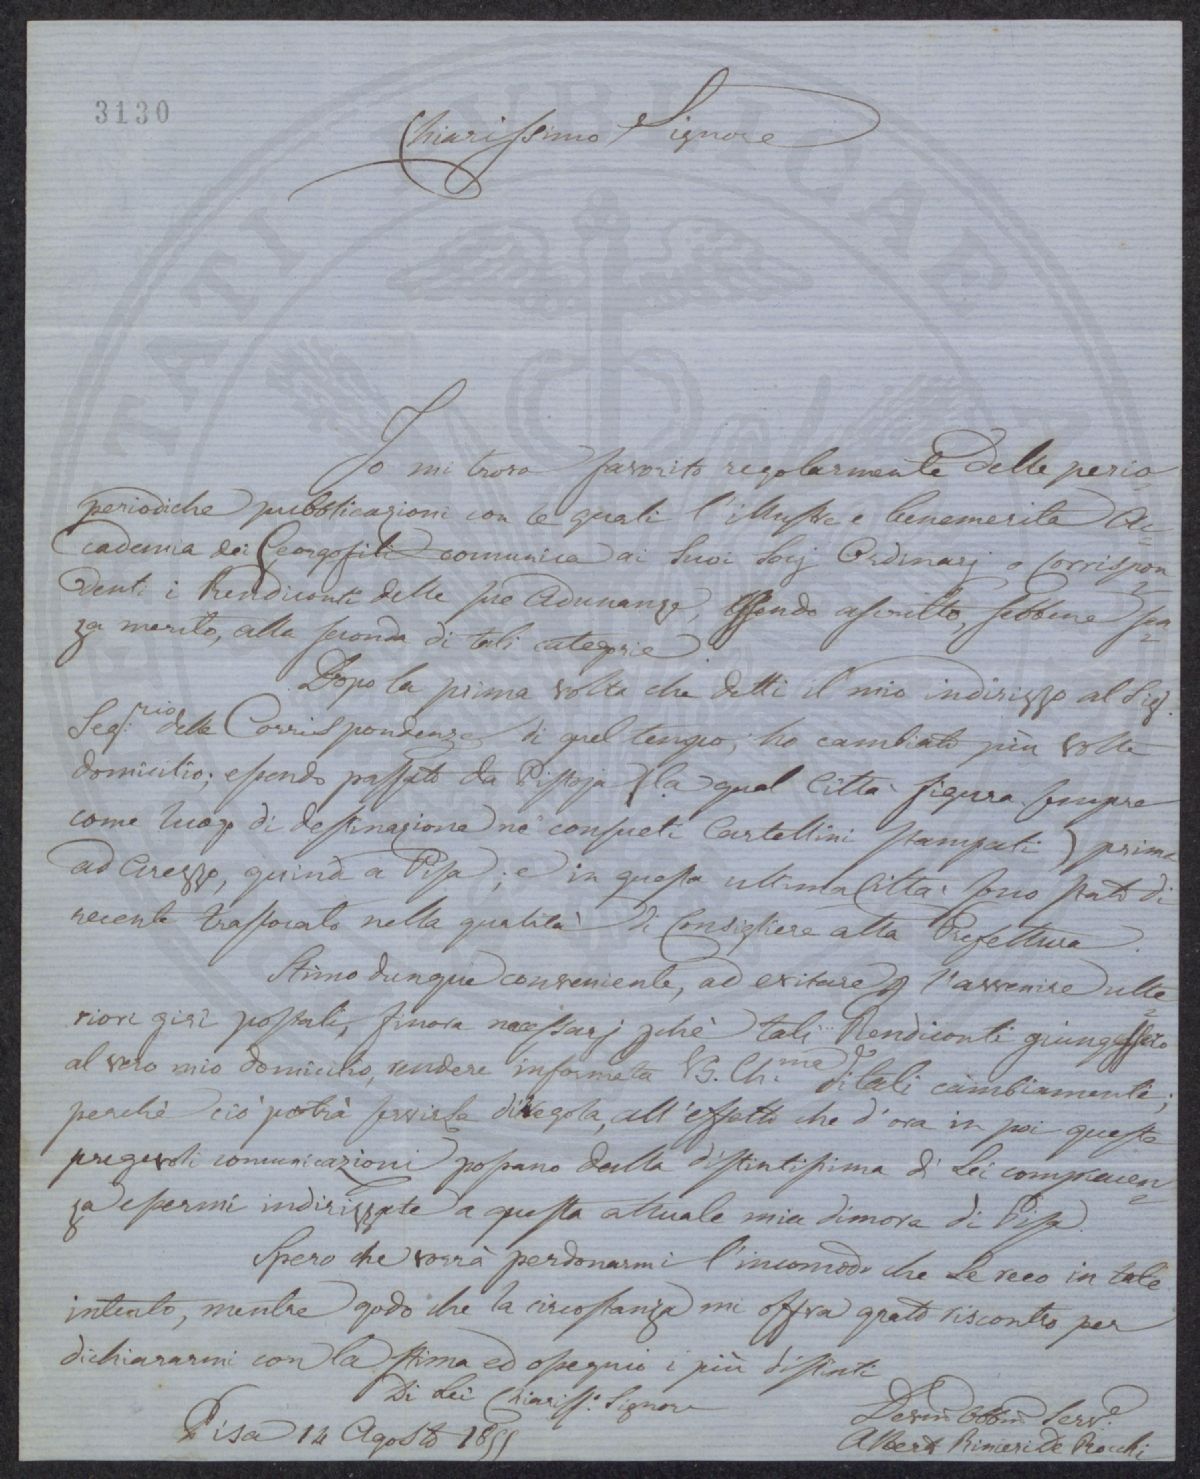 3130
Chiarissimo Signore
Io mi trovo favorito regolarmente delle perio
periodiche pubblicazioni con le quali l'illustre e benemerita Ac
cademia dei Georgofili comunica ai suoi Socj Ordinarj o Corrispon
denti i Rendiconti delle sue Adunanze, essendo ascritto, sebbene sen
za merito, alla seconda di tali categorie.
Dopo la prima volta che detti il mio indirizzo al Sig.
Seg.rio delle Corrispondenze di quel tempo, ho cambiato più volte
domicilio; essendo passato da Pistoja (la qual Città figura sempre
come luogo di destinazione ne' consueti Cartellini stampati) prima
ad Arezzo, quindi a Pisa; e in questa ultima Città sono stato di
recente traslocato nella qualità di Consigliere alla Prefettura.
Stimo dunque conveniente, ad evitare p l'avvenire ulte
riori giri postali, finora necessarj pchè tali Rendiconti giungessero
al vero mio domicilio, rendere informata VS. Ch.ma di tali cambiamenti;
perchè ciò potrà servirle di regola, all'effetto che d'ora in poi queste
pregevoli comunicazioni possano dalla distintissima di Lei compiacen
za essermi indirizzate a questa attuale mia dimora di Pisa.
Spero che vorrà perdonarmi l'incomodo che Le reco in tale
intento, mentre godo che la circostanza mi offra grato riscontro per
dichiararmi con la stima ed ossequio i più distinti
Di Lei Chiariss.o Signore
Pisa 14 Agosto 1855
Dev.mo Obb.mo Serv.e
Albert Rimieri De Rocchi